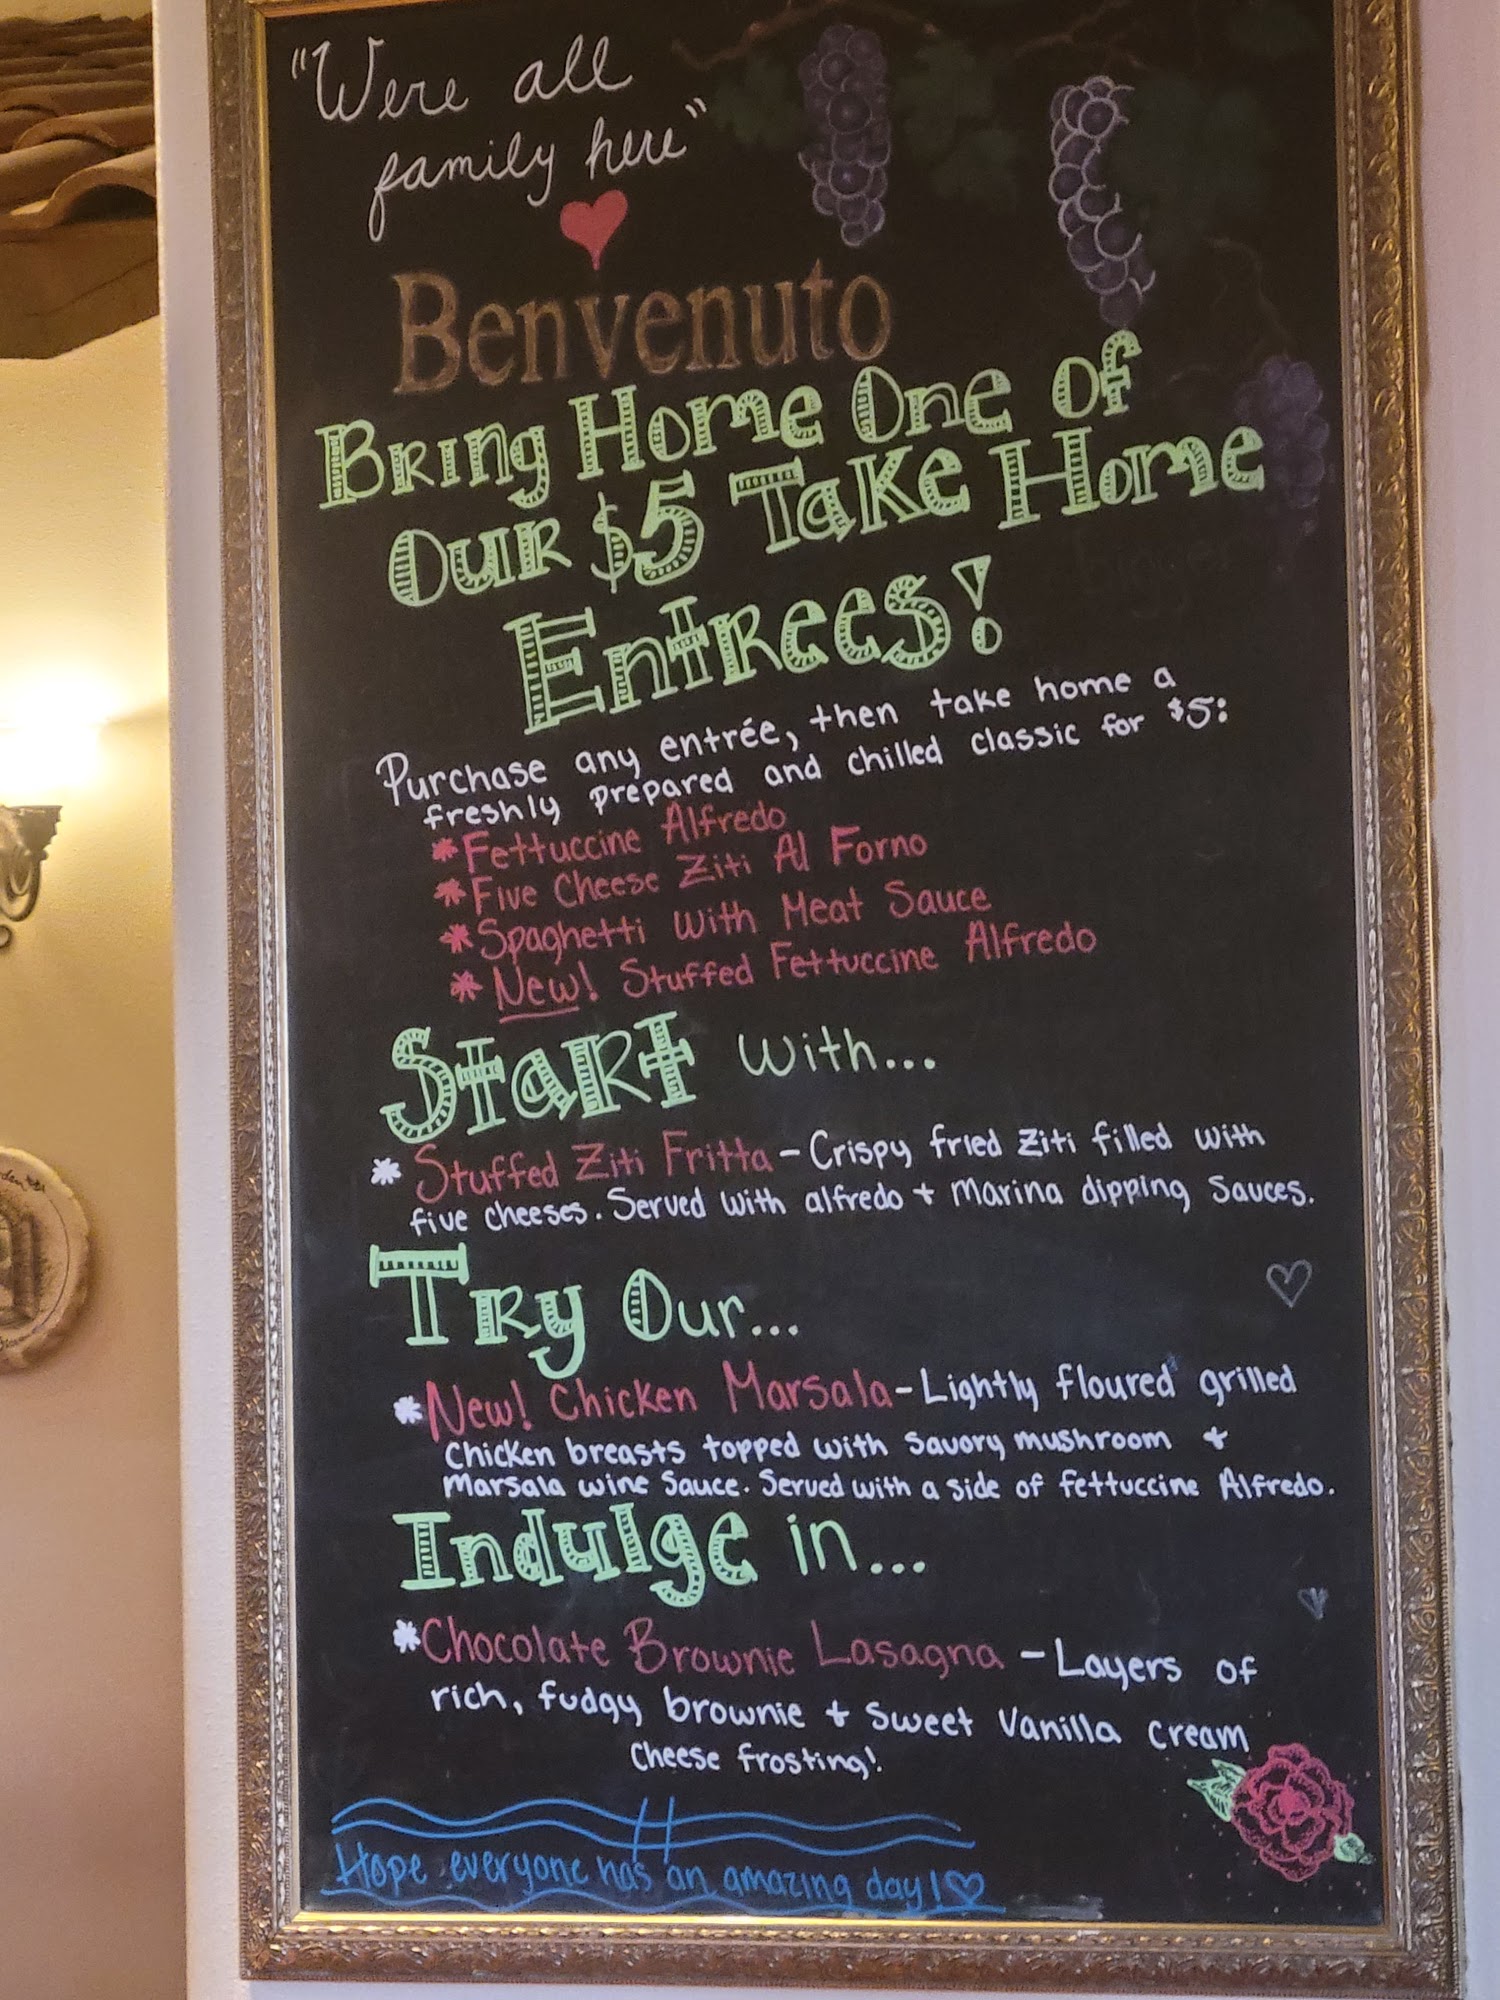 "We're all
family here"
Benvenuto
Bring Home One of
Our $5 Take Home
Entrees!
Purchase any entrée, then take home a
freshly prepared and chilled classic for $5:
*Fettuccine Alfredo
*Five Cheese Ziti Al Forno
*Spaghetti with Meat Sauce
*New! Stuffed Fettuccine Alfredo
Start with...
*Stuffed Ziti Fritta - Crispy fried Ziti filled with
five cheeses. Served with alfredo + Marina dipping Sauces.
Try Our...
*New! Chicken Marsala - Lightly floured grilled
Chicken breasts topped with savory mushroom +
Marsala wine Sauce. Served with a side of fettuccine Alfredo.
Indulge in...
*Chocolate Brownie Lasagna - Layers of
rich, fudgy brownie + Sweet Vanilla cream
Cheese frosting!
Hope everyone has an amazing day!